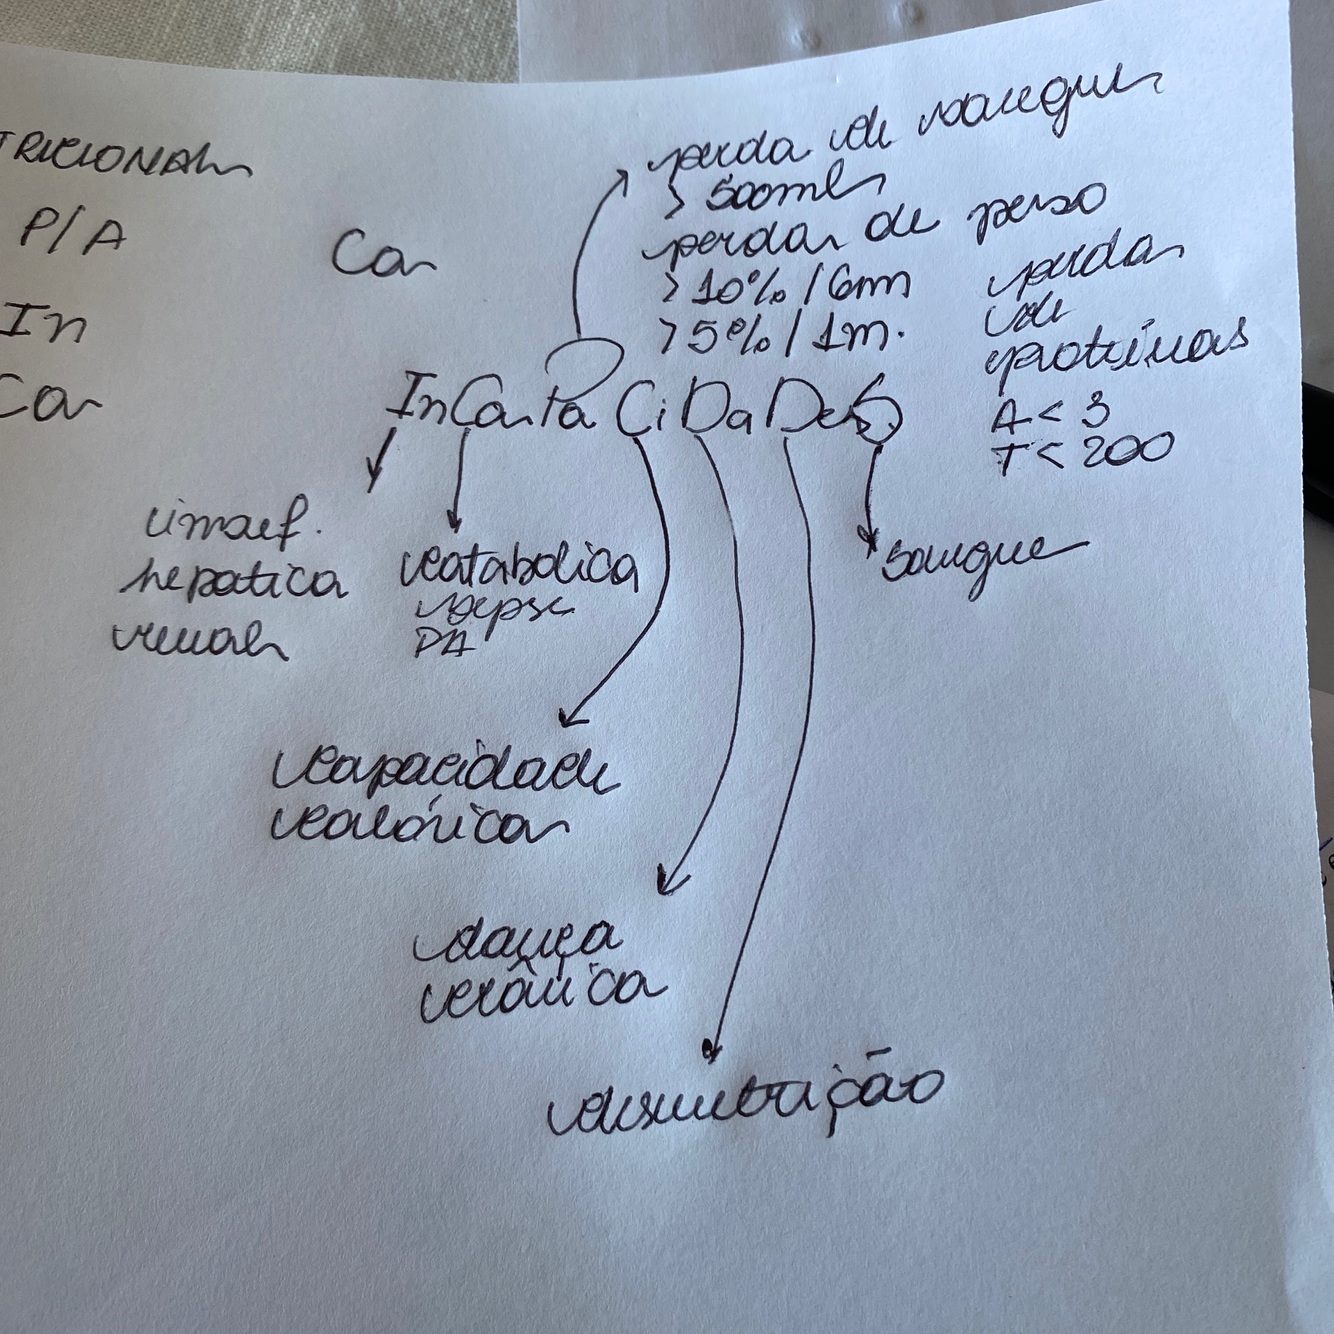 TRICIONAL
P/A
In
Ca
Ca
perda de sangue
> 500ml
perda de peso
> 10% / 6m
> 5% / 1m.
perda
de
proteínas
A < 3
T < 200
InCaPaCiDaDeS
insuf.
hepatica
renal
catabolica
sepse
PA
sangue
capacidade
calórica
doença
crônica
desnutrição